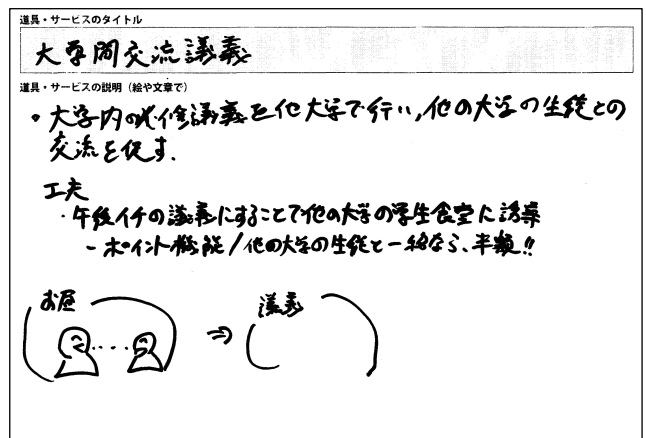 道具・サービスのタイトル
大学間交流議義
道具・サービスの説明（絵や文章で）
・大学内の必修議義を他大学で行い,他の大学の生徒との
交流を促す.
工夫
・午後イチの議義にすることで他の大学の学生食堂に誘導
- ポイント機能/他の大学の生徒と一緒なら、半額!!
お昼
⇒
議義